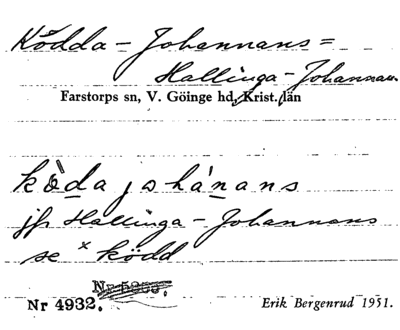 Ködda-Johannans=
Hallinga-Johannans
Farstorps sn, V. Göinge hd, Krist. län
kö̀da johánans
jfr Hallinga-Johannans
se × ködd
Nr 5800.
Nr 4932.
Erik Bergenrud 1951.